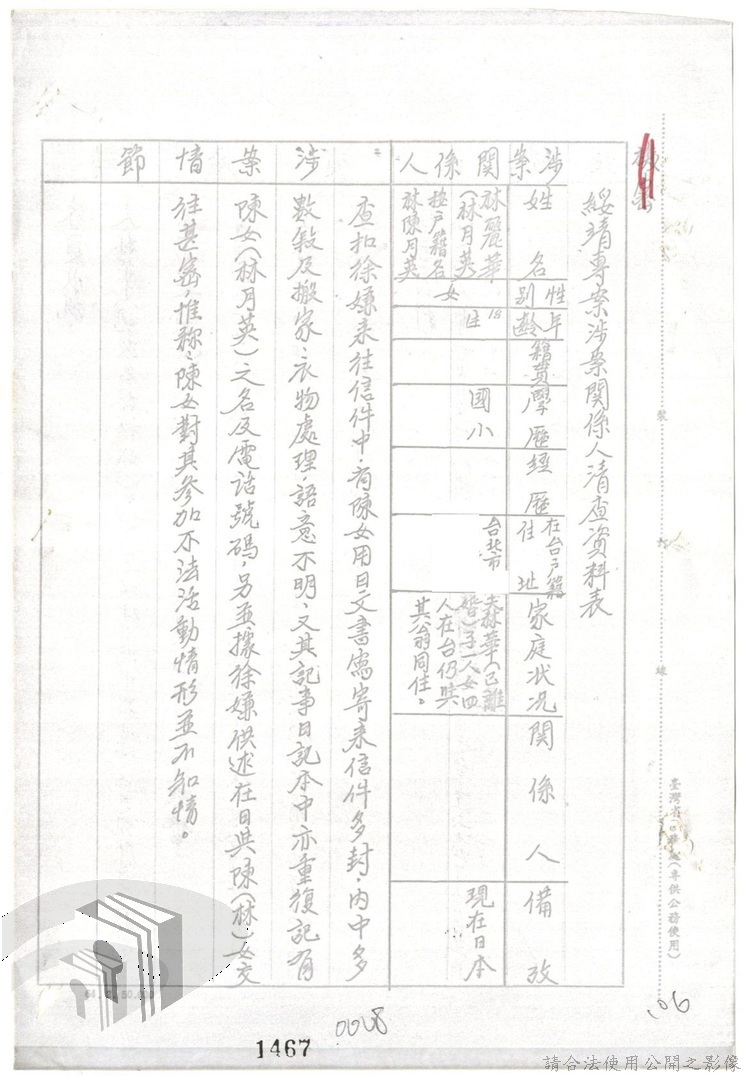 綏靖專案涉案關係人清查資料表
涉案關係人
姓名
性別
年齡
籍貫
學歷
經歷
在台戶籍住址
家庭狀况
關係人
備攷
林麗華
(林月英)
按戶籍名
林陳月英
女
18
住
國小
台北市
夫森華(已離
婚)子一人女四
人在台仍與
其翁同住。
現在日本
涉案情節
查扣徐嫌來往信件中,有陳女用日文書寫寄來信件多封,內中多
數敍及搬家、衣物處理,語意不明,又其記事日記本中亦重復記有
陳女(林月英)之名及電話號碼,另並據徐嫌供述在日與陳(林)女交
往甚密,惟稱:陳女對其參加不法活動情形並不知情。
裝
訂
線
臺灣省(專供公務使用)
106
0008
1467
請合法使用公開之影像